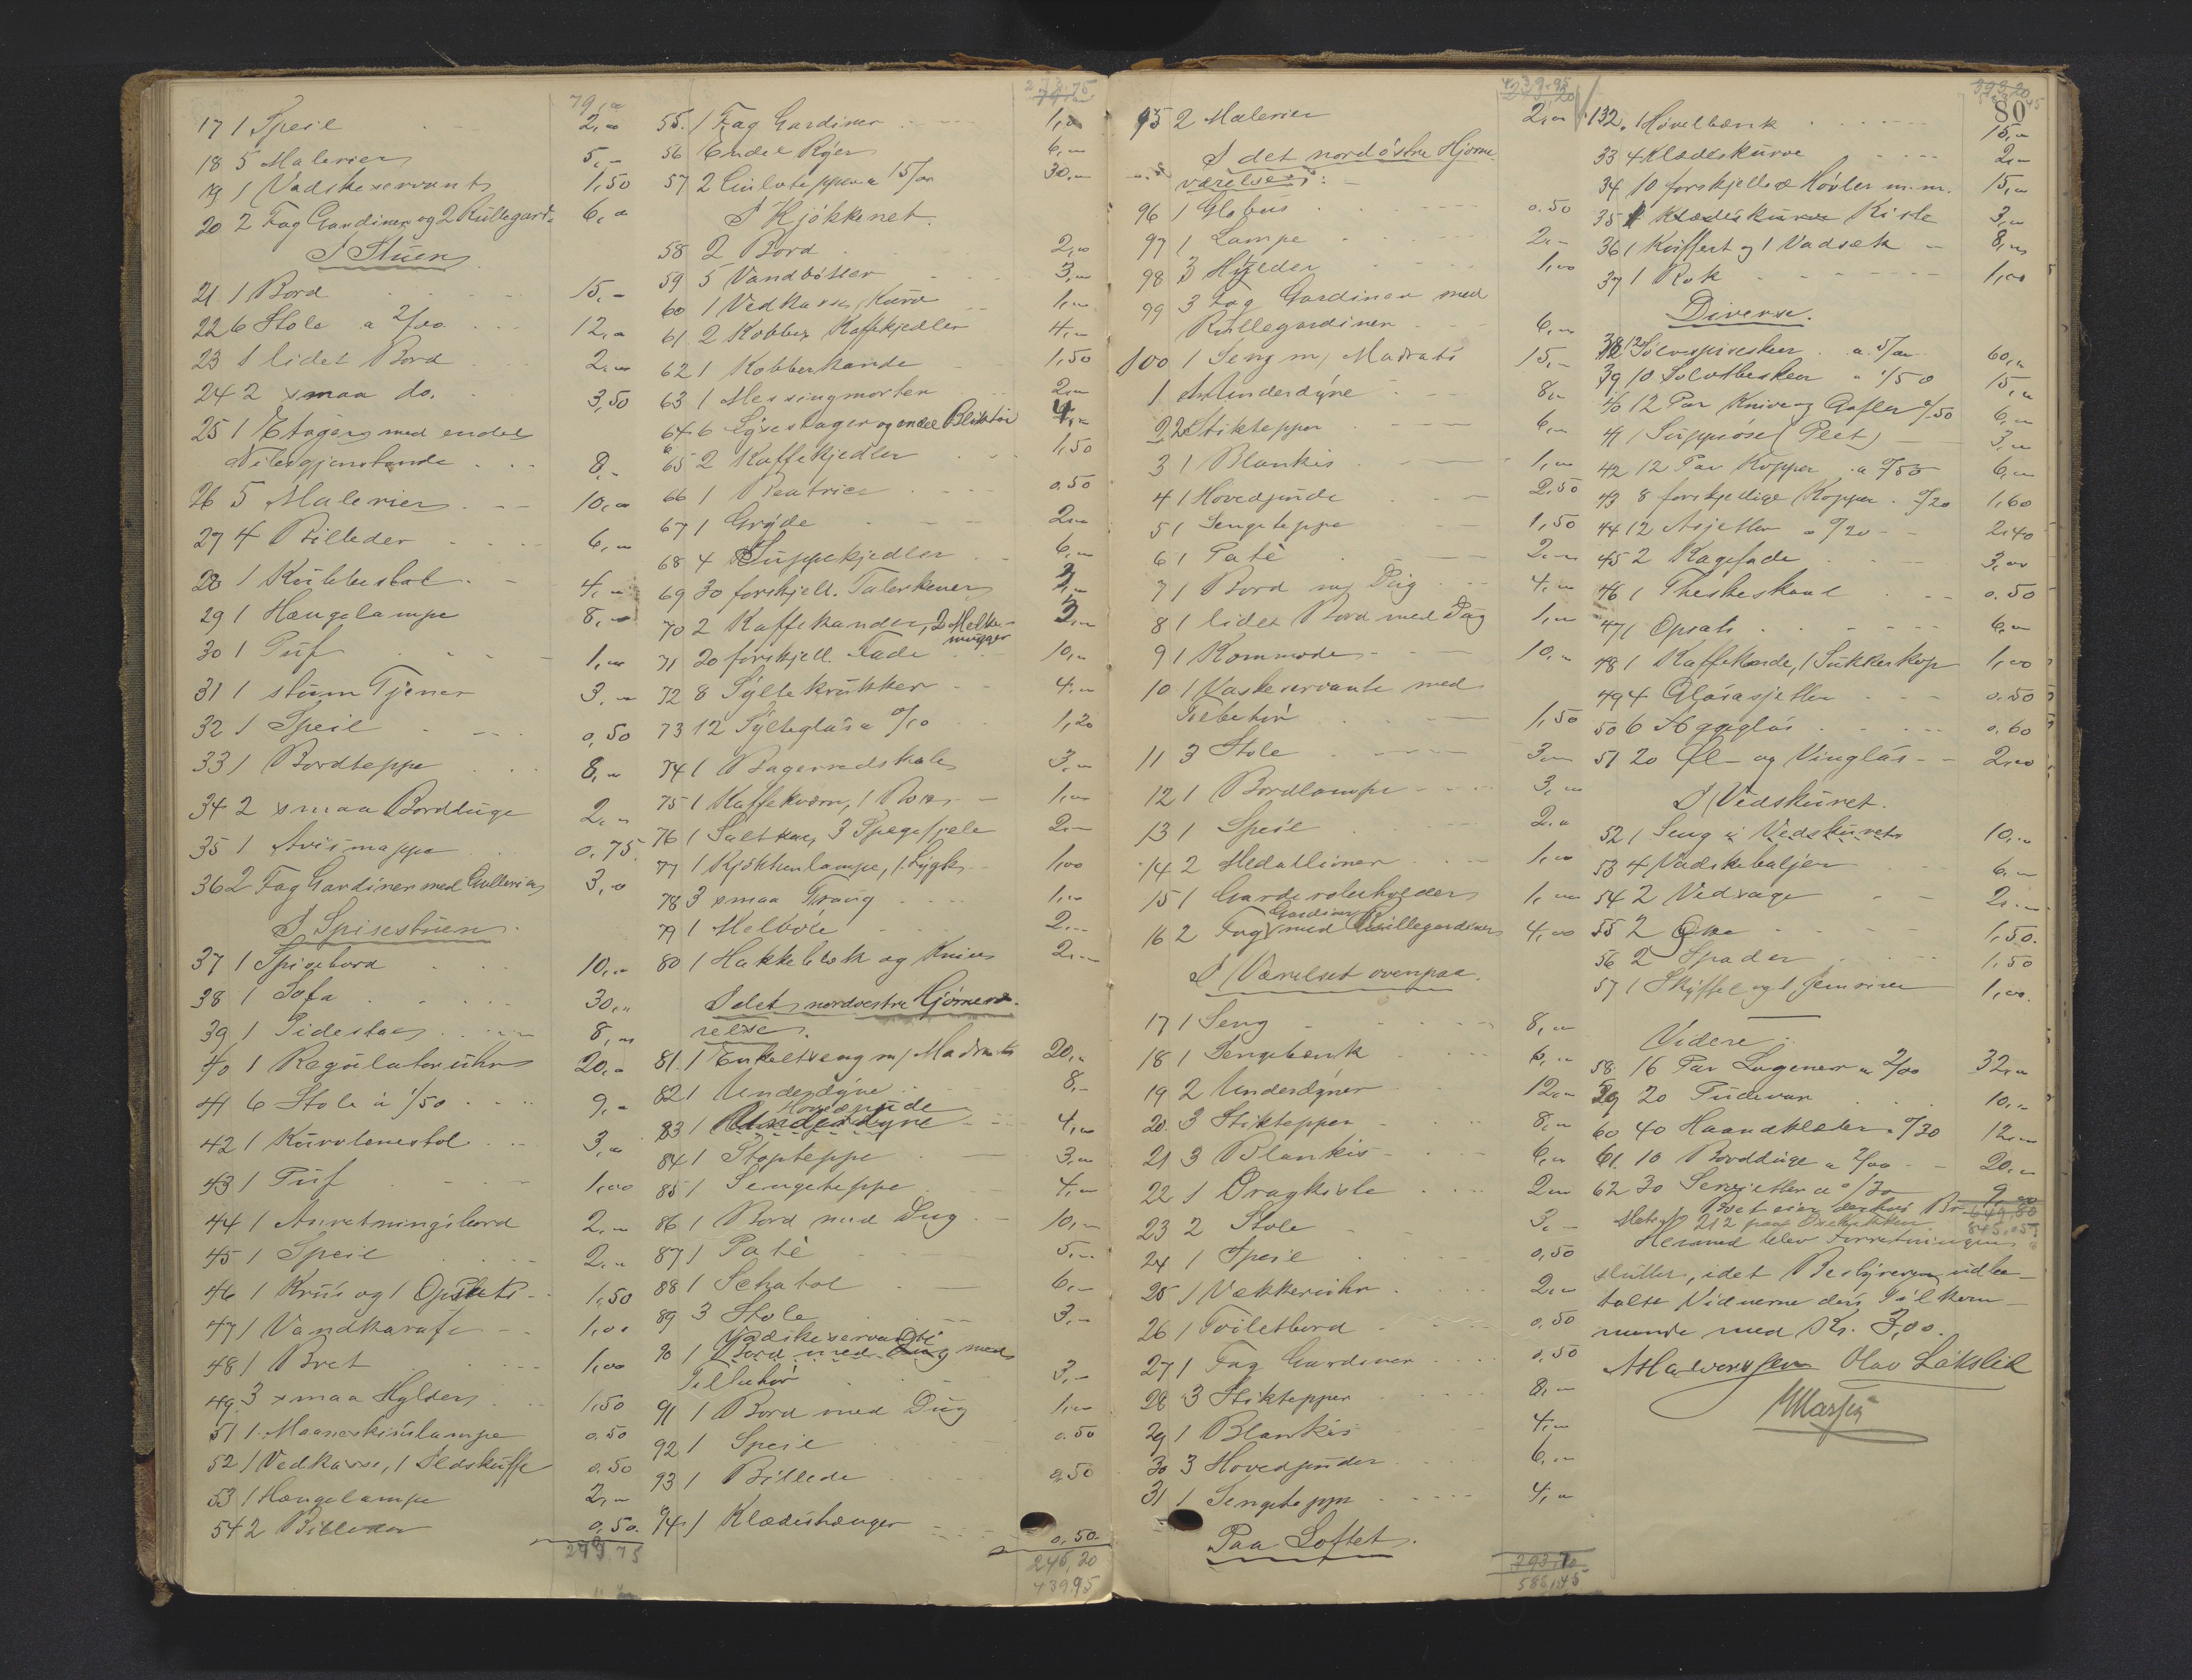 79,00
17 1 Speil 2,00
18 5 Malerier 5,-
19 1 Vadskeservants 1,50
20 2 Fag Gardiner og 2 Rullegard. 6,00
I Stuen
21 1 Bord 15,-
22 6 Stole a 2/00 12,00
23 1 lidet Bord 2,00
24 2 smaa do. 3,50
25 1 Etagere med endel
Nibsgjenstande 8,-
26 5 Malerier 10,00
27 4 Billeder 6,00
28 1 Kubbestol 4,00
29 1 Hængelampe 8,00
30 1 Puf 1,00
31 1 stum Tjener 3,00
32 1 Speil 0,50
33 1 Bordteppe 8,00
34 2 smaa Bordduge 2,00
35 1 Avismappe 0,75
36 2 Fag Gardiner med Gallerier 3,00
I Spisestuen.
37 1 Spisebord 10,00
38 1 Sofa 30,00
39 1 Pidestal 8,00
40 1 Regulatoruhr 20,00
41 6 Stole à 1/50 9,00
42 1 Kurvlenestol 3,00
43 1 Puf 1,00
44 1 Anretningsbord 2,00
45 1 Speil 2,00
46 1 Krus og 1 Opsats 1,50
47 1 Vandkarafe 1,00
48 1 Bret 1,00
49 3 smaa Hylder 1,50
51 1 Maaneskinslampe 0.50
52 1 Vedkasse, 1 Ildskuffe 0.50
53 1 Hængelampe 2,00
54 2 Billeder 0,50.
273,75
55. 1 Fag Gardiner 1,00
56 Endel Ryer 6,00
57 2 Gulvtepper a 15/00 30,00
I Kjökkenet.
58 2 Bord 2,00
59 5 Vandbötter 3,00
60 1 Vedkasse, Kurv 1,00
61 2 Kobber Kaffekjedler 4,00
62 1 Kobberkande 1,50
63 1 Messingmorter 2,00
64 6 Lysestager og endel Bliktöi 4,00
65 2 Kaffekjedler 1,50
66 1 Beatrice 0.50
67 1 Gryde 2,00
68 4 Suppekjedler 6,00
69 30 forskjell. Talerkener 3,00
70 2 Kaffekander, 2 Melke-
mugger 3,00
71 20 forskjell. Fade 10,00
72 8 Syltekrukker 4,00
73 12 Sylteglas a 0/10 1,20
74 1 Bageredskab 3,00
75 1 Kaffekværn, 1 1,00
76 1 Saltkar, 3 Spegefjele 2,00
77 1 Kjökkenlampe, 1 Lygte 1,00
78 3 smaa Traug 1,00
79 1 Melböle 2,00
80 1 Hakkeblok og Kniv 2,00
I det nordvestre Hjörnevæ-
relse.
81. 1 Enkeltseng m/ Madrats 20,00
82 1 Underdyne 8,-
83 1 Hovedpude 4,00
84 1 Stopteppe 3,00
85 1 Sengeteppe 4,00
86 1 Bord med Dug 10,00
87 1 Patè 5,00
88 1 Schatol 6,00
89 3 Stole 3,-
90 1 Vadskeservante med
Tilbehör 3,-
91 1 Bord med Dug 1,00
92 1 Speil 0.50
93 1 Billede 0,50
94 1 Klædeshænger 0,50
246,20
439.95
439.95
95 2 Malerier 2,00
I det nordöstre Hjörne
værelse:
96 1 Globus 0.50
97 1 Lampe 2,-
98 3 Hylder 1,00
99 3 Fag Gardiner med
Rullegardiner 6,00
100 1 Seng m/ Madrats 15,-
1 1 Underdyne 8,00
2 2 Stiktepper 6,00
3 1 Blankis 1,00
4 1 Hovedpude 2,50
5 1 Sengeteppe 1,50
6 1 Patè 2,00
7 1 Bord m/ Dug 4,00
8 1 lidet Bord med Dug 1,00
9 1 Kommode 10,00
10 1 Vaskeservante med
Tilbehör 1,50
11 3 Stole 3,00
12 1 Bordlampe 3,00
13 1 Speil 2,00
14 2 Medallioner 1,00
15 1 Garderobeholder 1,00
16 2 Fag Gardiner med Rullegardiner 4,00
I Værelset ovenpaa.
17 1 Seng 8,00
18 1 Sengebænk 6,00
19 2 Underdyner 12,00
20. 3 Stiktepper 8,00
21 3 Blankis 6,00
22 1 Dragkiste 2,00
23 2 Stole 3,-
24 1 Speil 0,50
25 1 Vækkeruhr 2,00
26 1 Toiletbord 0,50
27 1 Fag Gardiner 0,50
28 3 Stiktepper 8,00
29 1 Blankis 4,00
30 3 Hovedpuder 6,00
31 1 Sengeteppe 4,00
Paa Loftet.
586,45
80
132. 1 Hövelbænk 15,00
33 4 Klædeskurve 2,00
34 10 forskjellige Hövler m.m. 15,00
35 1 Kiste 3,00
36 1 Kuffert og 1 Vadsæk 8,00
37 1 Rok 1,00
Diverse.
38 12 Sölvspiseskeer a 5/00 60,00
39 10 Sölvtheskeer a 1/50 15,00
40 12 Par Knive og Gafler 0/50 6,00
41 1 Suppeöse (Plet) 3,00
42 12 Par Kopper a 0/50 6,00
43 8 forskjellige Kopper 0/20 1,60
44 12 Asjetter a 0/20 2,40
45 2 Kagefade 3,00
46 1 Theskeskaal 0.50
47 1 Opsats 6,00
48 1 Kaffekande, 1 Sukkerkop 1,00
49 4 Glasasjetter 0.50
50 6 Æggeglas 0.60
51 20 Øl- og Vinglas 2,00
I Vedskuret.
52 1 Seng i Vedskuret 10,00
53 4 Vadskebaljer 6,00
54 2 Vedsage 2,00
55 2 Økse 1,50.
56 2 Spader 1,50
57 1 Skyffel og 1 1,00.
Videre:
58. 16 Par Lagener a 2/00 32,00
59 20 Pudevar 10,00
60 40 Haandklæder a 0/30 12,00
61. 10 Bordduge a 2/00 20,00
62 30 Servietter a 0/30 9,00
845,05
Hermed blev Forretningen
sluttet, idet Bestyreren udbe-
talte Vidnerne deres Tilkom-
mende med Kr. 3,00.
Olav Lökslid